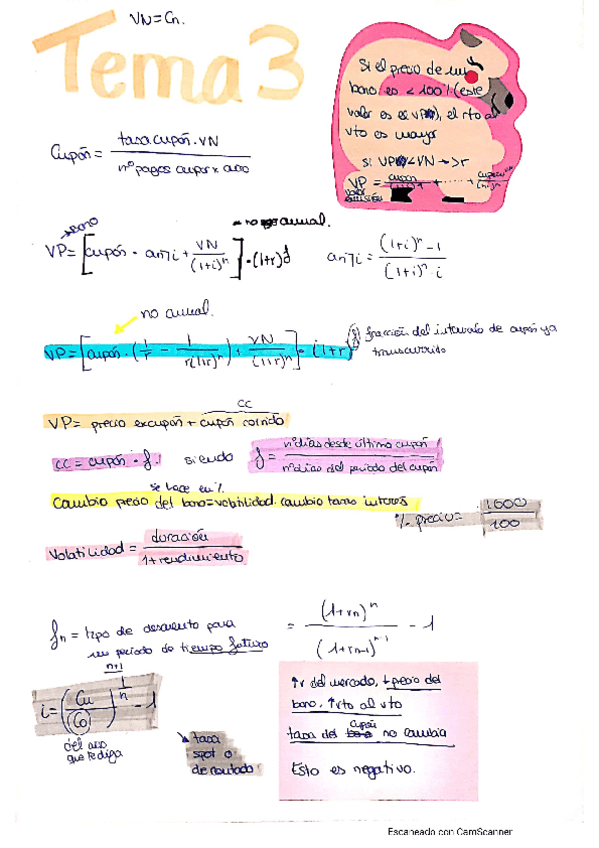 VN = Cn.
Tema 3
Si el precio de un
bono es < 100% (este
valor es el VP), el rto al
vto es mayor
si VP < VN → >r
Cupón = tasa cupón · VN / nº pagos cupon x año
bono
no anual.
VP = [cupón · an¬i + VN / (1+i)^n] · (1+r)^f
an¬i = (1+i)^n - 1 / (1+i)^n · i
no anual.
VP = [cupón · (1/r - 1/r(1+r)^n) + VN/(1+r)^n] · (1+r)^f
fracción del intervalo de cupón ya
transcurrido
cc
VP = precio excupón + cupón corrido
cc = cupón · f. siendo f = nº días desde último cupón / nº días del periodo del cupón
se hace en %
Cambio precio del bono = volatilidad · cambio tasas interés
% precio = 1.600 / 100
Volatilidad = duración / 1 + rendimiento
fn = tipo de descuento para
un periodo de tiempo futuro
= (1+rn)^n / (1+rn-1)^n-1 - 1
n+1
i = (Cn / C0)^1/n - 1
del año
que te diga
tasa
spot o
de contado
↑r del mercado, ↓precio del
bono, ↑rto al vto
cupón
tasa del no cambia
Esto es negativo.
Escaneado con CamScanner